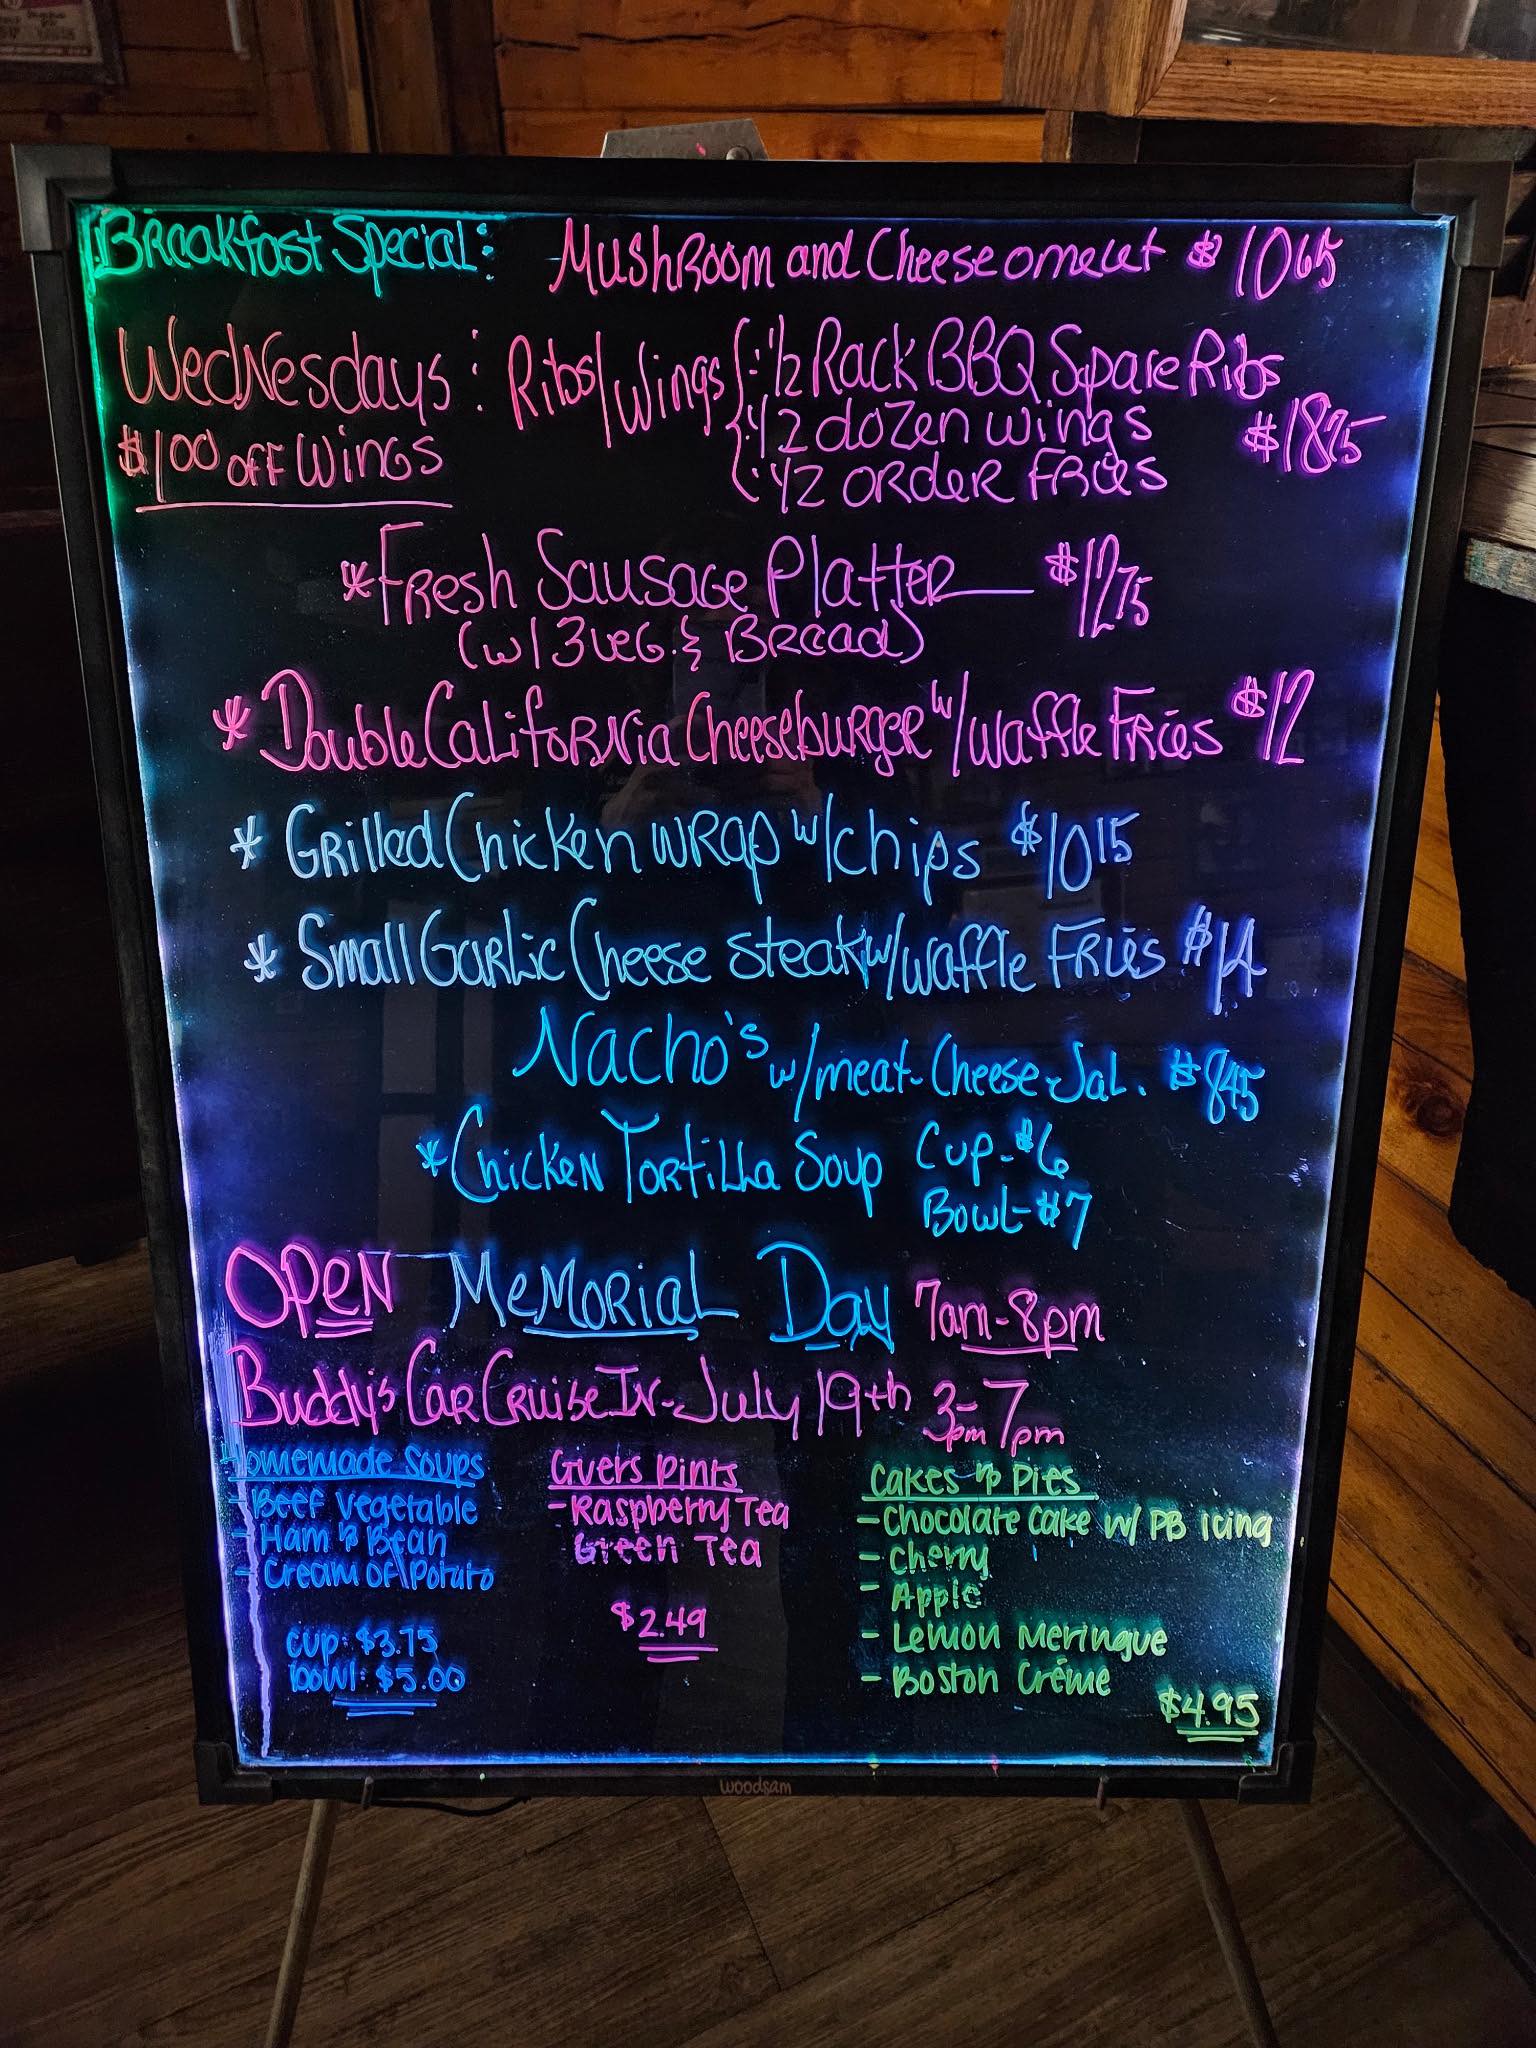 Breakfast Special: Mushroom and Cheese omelet $10.65
Wednesdays: Ribs/Wings
$1.00 off Wings
1/2 Rack BBQ Spare Ribs
1/2 dozen wings $18.75
1/2 order Fries
*Fresh Sausage Platter $12.75
(w/ 3 veg. & Bread)
*Double California Cheeseburger w/ waffle Fries $12
*Grilled Chicken wrap w/ chips $10.15
*Small Garlic Cheese steak w/ waffle Fries $14
Nacho's w/ meat-Cheese-Jal. $8.45
*Chicken Tortilla Soup Cup-$6
Bowl-$7
OPEN Memorial Day 7am-8pm
Buddy's Car Cruise In-July 19th 3pm-7pm
Homemade Soups
- Beef Vegetable
- Ham & Bean
- Cream of Potato
cup: $3.75
bowl: $5.00
Guers Pints
- Raspberry Tea
Green Tea
$2.49
Cakes & Pies
- Chocolate Cake w/ PB Icing
- Cherry
- Apple
- Lemon Meringue
- Boston Créme
$4.95
woodsam